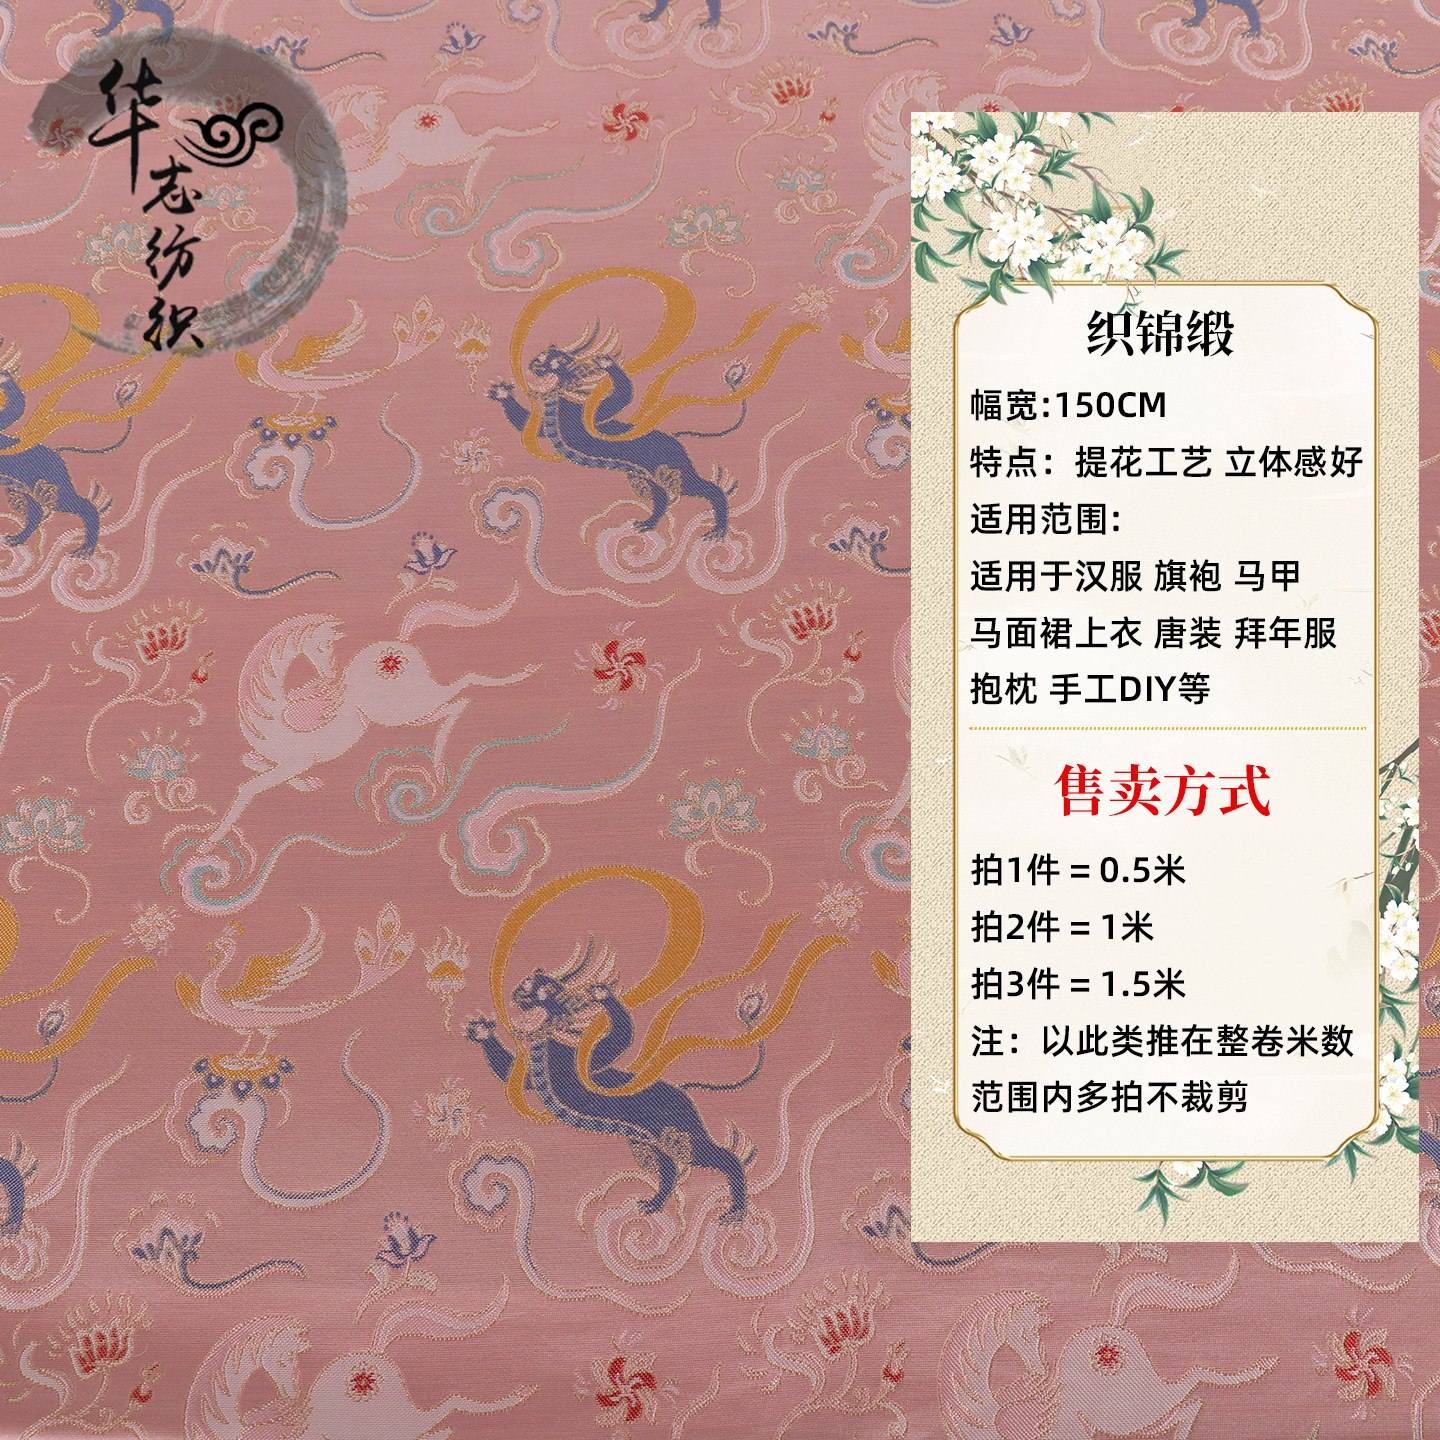 华志纺织
织锦缎
幅宽:150CM
特点：提花工艺 立体感好
适用范围:
适用于汉服 旗袍 马甲
马面裙上衣 唐装 拜年服
抱枕 手工DIY等
售卖方式
拍1件 = 0.5米
拍2件 = 1米
拍3件 = 1.5米
注：以此类推在整卷米数
范围内多拍不裁剪